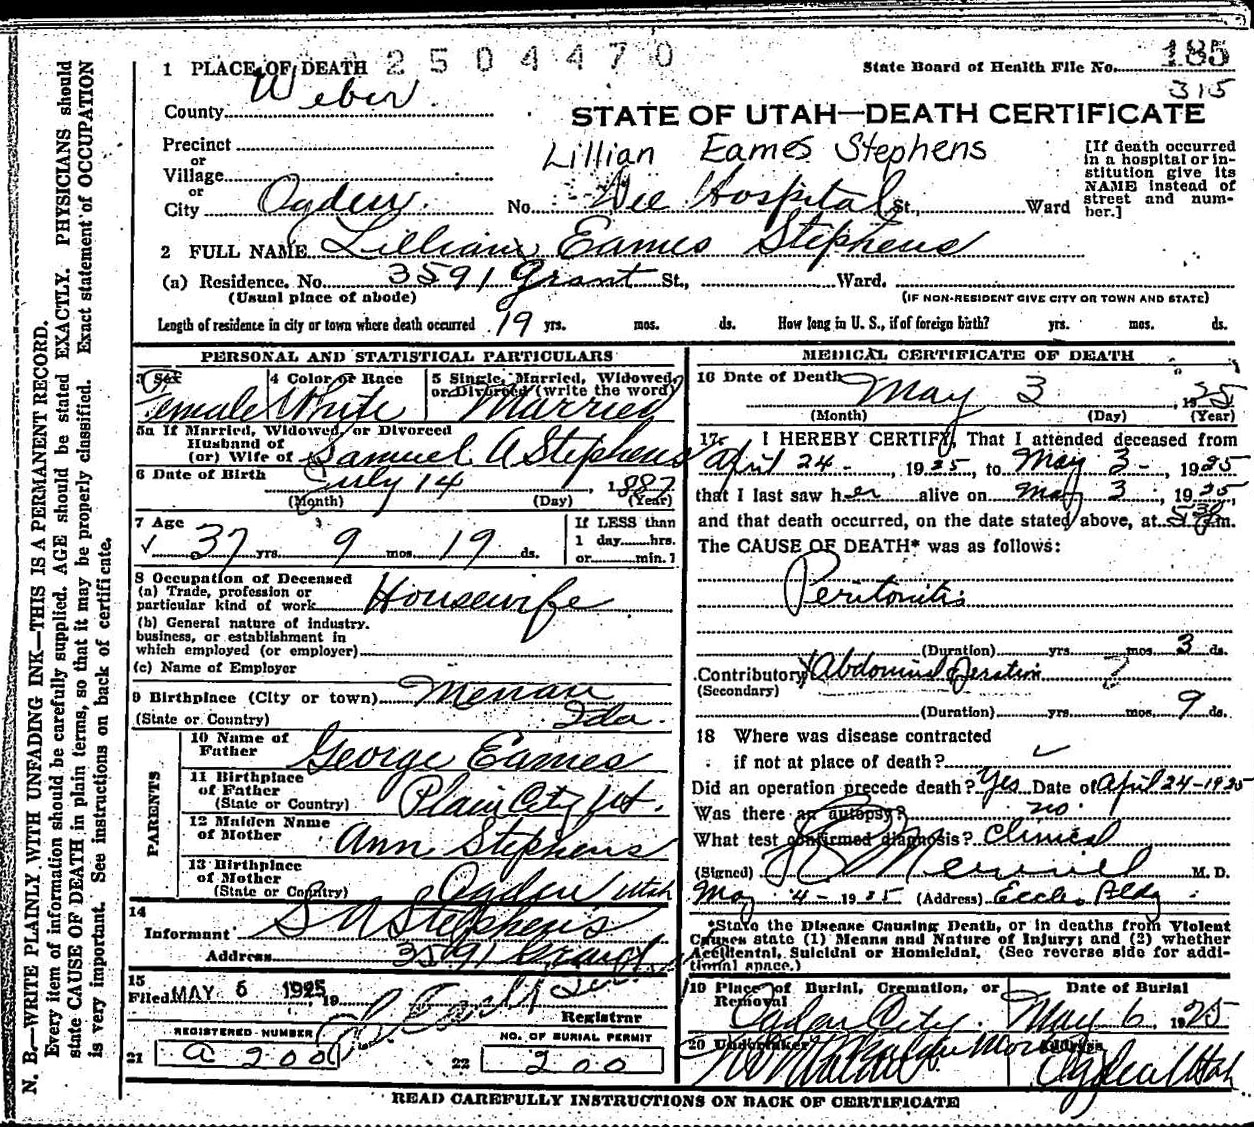 N. B.—WRITE PLAINLY, WITH UNFADING INK—THIS IS A PERMANENT RECORD.
Every item of information should be carefully supplied. AGE should be stated EXACTLY. PHYSICIANS should
state CAUSE OF DEATH in plain terms, so that it may be properly classified. Exact statement of OCCUPATION
is very important. See instructions on back of certificate.
1 PLACE OF DEATH 2504470
State Board of Health File No. 185
315
County Weber
STATE OF UTAH—DEATH CERTIFICATE
Precinct
or
Village
or
City Ogden
Lillian Eames Stephens
No. Dee Hospital St., Ward
[If death occurred
in a hospital or in-
stitution give its
NAME instead of
street and num-
ber.]
2 FULL NAME Lillian Eames Stephens
(a) Residence. No. 3591 Grant St., Ward.
(Usual place of abode)
(IF NON-RESIDENT GIVE CITY OR TOWN AND STATE)
Length of residence in city or town where death occurred 19 yrs. mos. ds. How long in U. S., if of foreign birth? yrs. mos. ds.
PERSONAL AND STATISTICAL PARTICULARS
3 Sex
Female
4 Color or Race
White
5 Single, Married, Widowed,
or Divorced (write the word)
Married
5a If Married, Widowed, or Divorced
Husband of
(or) Wife of Samuel A Stephens
6 Date of Birth July 14, 1887
(Month) (Day) (Year)
7 Age
37 yrs. 9 mos. 19 ds.
If LESS than
1 day....hrs.
or....min.]
8 Occupation of Deceased
(a) Trade, profession or
particular kind of work Housewife
(b) General nature of industry,
business, or establishment in
which employed (or employer)
(c) Name of Employer
9 Birthplace (City or town) Menan
(State or Country) Ida.
PARENTS
10 Name of
Father George Eames
11 Birthplace
of Father
(State or Country) Plain City Ut.
12 Maiden Name
of Mother Ann Stephens
13 Birthplace
of Mother
(State or Country) Ogden Utah
14
Informant S A Stephens
Address 3591 Grant
15
Filed MAY 6 1925 19
Registrar
REGISTERED NUMBER
21 a 200
NO. OF BURIAL PERMIT
22 200
MEDICAL CERTIFICATE OF DEATH
16 Date of Death May 3, 1925
(Month) (Day) (Year)
17. I HEREBY CERTIFY, That I attended deceased from
April 24-, 1925, to May 3-, 1925
that I last saw her alive on May 3, 1925,
and that death occurred, on the date stated above, at m.
The CAUSE OF DEATH* was as follows:
Peritonitis
(Duration) yrs. mos. 3 ds.
Contributory Abdominal Operation
(Secondary)
(Duration) yrs. mos. 9 ds.
18 Where was disease contracted
if not at place of death?
Did an operation precede death? Yes Date of April 24-1925
Was there an autopsy? no
What test confirmed diagnosis? Clinical
(Signed) Merrill M. D.
May 4-1925 (Address) Eccles Bldg
*State the Disease Causing Death, or in deaths from Violent
Causes state (1) Means and Nature of Injury; and (2) whether
Accidental, Suicidal or Homicidal. (See reverse side for addi-
tional space.)
19 Place of Burial, Cremation, or
Removal
Ogden City
Date of Burial
May 6, 1925
20 Undertaker
Address
Ogden Utah
READ CAREFULLY INSTRUCTIONS ON BACK OF CERTIFICATE